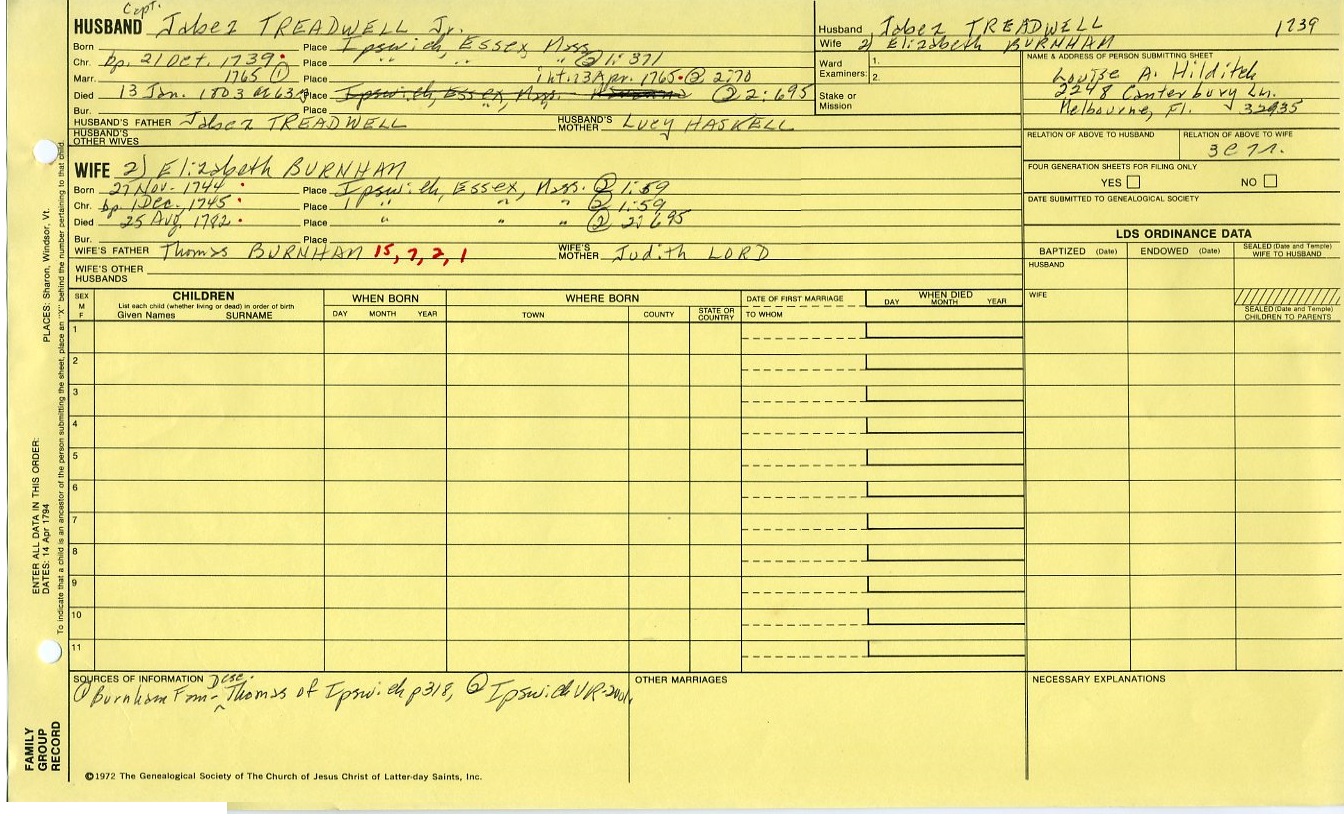 Capt.
HUSBAND Jabez TREADWELL Jr.
Born Place Ipswich, Essex Mass
Chr. bp. 21 Oct. 1739 Place " " " ② 1:371
Marr. 1765 ① Place int. 13 Apr. 1765 ② 2:70
Died 13 Jan. 1803 ae 63y Place Ipswich, Essex, Mass. ② 2:695
Bur. Place
HUSBAND'S FATHER Jabez TREADWELL HUSBAND'S MOTHER Lucy HASKELL
HUSBAND'S OTHER WIVES
WIFE 2) Elizabeth BURNHAM
Born 27 Nov. 1744 Place Ipswich, Essex, Mass. ② 1:59
Chr. bp. 1 Dec. 1745 Place " " " ② 1:59
Died 25 Aug. 1782 Place " " ② 2:695
Bur. Place
WIFE'S FATHER Thomas BURNHAM 15, 7, 2, 1 WIFE'S MOTHER Judith LORD
WIFE'S OTHER HUSBANDS
Husband Jabez TREADWELL 1739
Wife 2) Elizabeth BURNHAM
Ward Examiners: 1.
2.
Stake or Mission
NAME & ADDRESS OF PERSON SUBMITTING SHEET
Louise A. Hilditch
2248 Canterbury Ln.
Melbourne, Fl. 32935
RELATION OF ABOVE TO HUSBAND RELATION OF ABOVE TO WIFE
FOUR GENERATION SHEETS FOR FILING ONLY
YES NO
DATE SUBMITTED TO GENEALOGICAL SOCIETY
LDS ORDINANCE DATA
BAPTIZED (Date) ENDOWED (Date) SEALED (Date and Temple) WIFE TO HUSBAND
HUSBAND
WIFE
SEALED (Date and Temple) CHILDREN TO PARENTS
SEX M F
CHILDREN
List each child (whether living or dead) in order of birth
Given Names SURNAME
WHEN BORN
DAY MONTH YEAR
WHERE BORN
TOWN COUNTY STATE OR COUNTRY
DATE OF FIRST MARRIAGE
TO WHOM
WHEN DIED
DAY MONTH YEAR
1
2
3
4
5
6
7
8
9
10
11
SOURCES OF INFORMATION
① Burnham Fam- Desc. Thomas of Ipswich p318, ② Ipswich VR
OTHER MARRIAGES
NECESSARY EXPLANATIONS
©1972 The Genealogical Society of The Church of Jesus Christ of Latter-day Saints, Inc.
FAMILY GROUP RECORD
ENTER ALL DATA IN THIS ORDER:
DATES: 14 Apr 1794
PLACES: Sharon, Windsor, Vt.
To indicate that a child is an ancestor of the person submitting the sheet, place an "X" behind the number pertaining to that child.